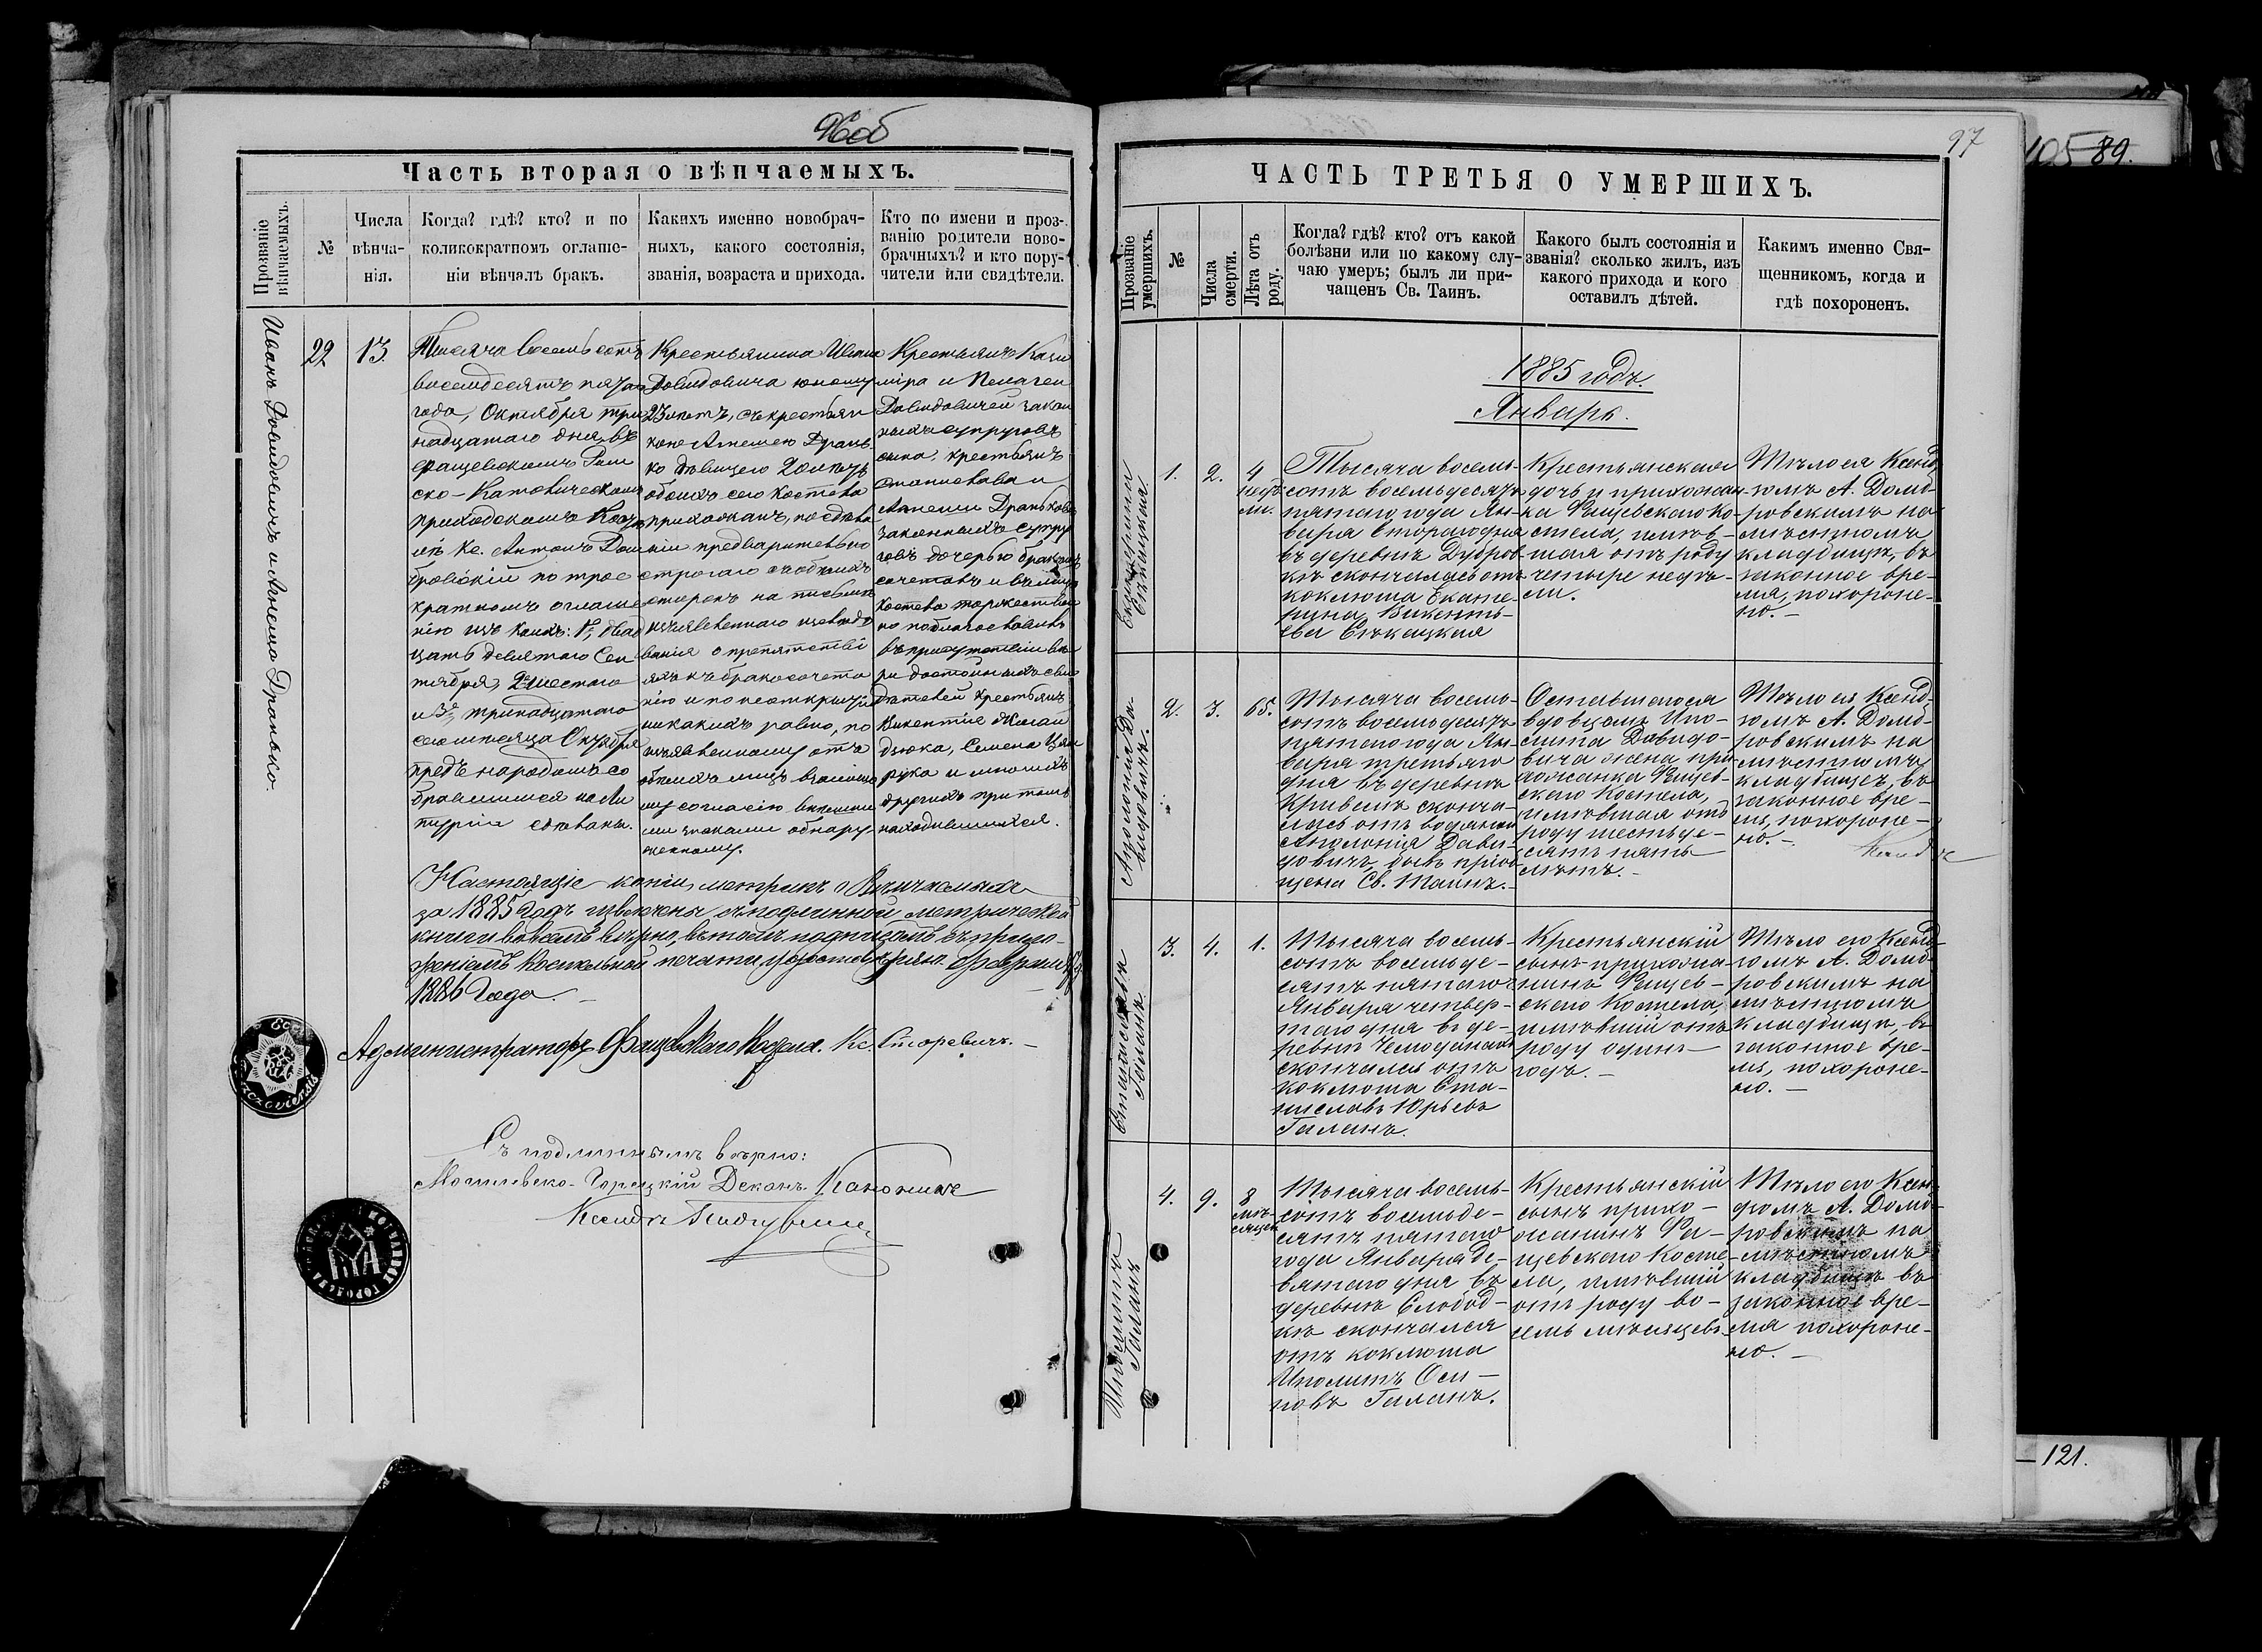 96об
Часть вторая о вѣнчаемыхъ.
Прозваніе
вѣнчаемыхъ.
№
Числа
вѣнча-
нія.
Когда? гдѣ? кто? и по
коликократномъ оглаше-
ніи вѣнчалъ бракъ.
Какихъ именно новобрач-
ныхъ, какого состоянія,
званія, возраста и прихода.
Кто по имени и проз-
ванію родители ново-
брачныхъ? и кто пору-
чители или свидѣтели.
Иванъ Довидовичъ и Агнеша Дранько.
22
13.
Тысяча восемьсотъ
восемдесятъ пятаго
года, Октября три
надцатаго дня, въ
Фащевскомъ Рим
ско-Католическомъ
приходскомъ Косте
лѣ Кс. Антонъ Дом
бровскій по трое
кратномъ оглаше
ніи изъ коихъ: 1е, двад
цать девятаго Сен
тября, 2е шестаго
и 3е, тринадцатаго
сего мѣсяца Октября
предъ народомъ со
бравшимся на Ли
тургіи сдѣланы.
Крестьянина Ивана
Довидовича юношу
23 лѣтъ, съ крестьян
кою Агнешею Дрань
ко дѣвицею 20 лѣтъ
обоихъ сего Костела
прихожанъ, по сдѣла
ніи предварительно
строгаго съ обѣихъ
сторонъ на письмѣ
изъявленнаго изслѣдо
ванія о препятстві
яхъ къ бракосочета
нію и по неоткрытіи
никакихъ равно, по
изъявленному отъ
обѣихъ лицъ взаимно
му согласію внѣшни
ми знаками обнару
женному.
Крестьянъ Кази
міра и Пелагеи
Довидовичей закон
ныхъ супруговъ
сына, крестьянъ
Станислава и
Агнеши Драньковъ
законныхъ супру
говъ дочерью бракомъ
сочеталъ и въ лицѣ
Костела торжествен
но поблагословилъ
въ присутствіи вѣ
ры достойныхъ сви
дѣтелей крестьянъ
Викентія
дзюка, Семена
рука и многихъ
другихъ при томъ
находившихся.
Настоящіе копіи метрикъ о Вѣнчаемыхъ
за 1885 Годъ извлечены съ подлинной метрической
книги вовсемъ вѣрно, въ томъ подписомъ съ прило-
женіемъ Костельной печати удостовѣряю. Февраля
1886 Года. —
Администраторъ Фащевскаго Костела. Кс.
Съ подлиннымъ вѣрно:
Могилевско-Горецкій Деканъ. Каноникъ
Ксендзъ
97
ЧАСТЬ ТРЕТЬЯ О УМЕРШИХЪ.
Прозваніе
умершихъ.
№
Числа
смерти.
Лѣта отъ
роду.
Когда? гдѣ? кто? отъ какой
болѣзни или по какому слу-
чаю умеръ; былъ ли при-
чащенъ Св. Таинъ.
Какого былъ состоянія и
званія? сколько жилъ, изъ
какого прихода и кого
оставилъ дѣтей.
Какимъ именно Свя-
щенникомъ, когда и
гдѣ похороненъ.
1885 годъ.
Январь.
Екатерина
1.
2.
4
недѣ-
ли.
Тысяча восемь-
сотъ восемьдесятъ
пятаго года Ян-
варя втораго дня
въ деревнѣ Дубров-
кѣ скончалась отъ
коклюша Екате-
рина Викенть-
ева
Крестьянская
дочь и прихожан-
ка Фащевскаго Ко-
стела, имѣв-
шая отъ роду
четыре недѣ-
ли.
Тѣло ея Ксенд-
зомъ А. Домб-
ровскимъ на
мѣстномъ
кладбищѣ, въ
законное вре-
мя, похороне-
но. —
Аполонія Да-
видовичъ.
2.
3.
65.
Тысяча восемь-
сотъ восемьдесятъ
пятаго года Ян-
варя третьяго
дня въ деревнѣ
Кривелѣ сконча-
лась отъ водянки
Аполонія Дави-
довичъ, бывъ пріоб-
щена Св. Таинъ. —
Оставшагося
вдовцомъ Ипо-
лита Давидо-
вича жена при-
хожанка Фащев-
скаго Костела,
имѣвшая отъ
роду шестьде-
сятъ пять
лѣтъ. —
Тѣло ея Ксенд-
зомъ А. Домб-
ровскимъ на
мѣстномъ
кладбищѣ, въ
законное вре-
мя, похороне-
но. —
Станиславъ
Галанъ.
3.
4.
1.
Тысяча восемь-
сотъ восемьде-
сятъ пятаго
Января четвер-
таго дня въ де-
ревнѣ Чемоданахъ
скончался отъ
коклюша Ста-
ниславъ Юрьевъ
Галанъ.
Крестьянскій
сынъ прихожа-
нинъ Фащев-
скаго Костела,
имѣвшій отъ
роду одинъ
годъ. —
Тѣло его Ксенд-
зомъ А. Домб-
ровскимъ на
мѣстномъ
кладбищѣ, въ
законное вре-
мя, похороне-
но. —
Иполитъ
Галанъ
4.
9.
8
мѣ-
сяцевъ
Тысяча восемь-
сотъ восемьде-
сятъ пятаго
года Января де-
вятаго дня въ
деревнѣ Слобод-
кѣ скончался
отъ коклюша
Иполитъ Оси-
повъ Галанъ.
Крестьянскій
сынъ прихо-
жанинъ Фа-
щевскаго Косте-
ла, имѣвшій
отъ роду во-
семь мѣсяцевъ.
Тѣло его Ксен-
дзомъ А. Домб-
ровскимъ на
мѣстномъ
кладбищѣ въ
законное вре-
мя похороне-
но. —
105 89.
— 121.